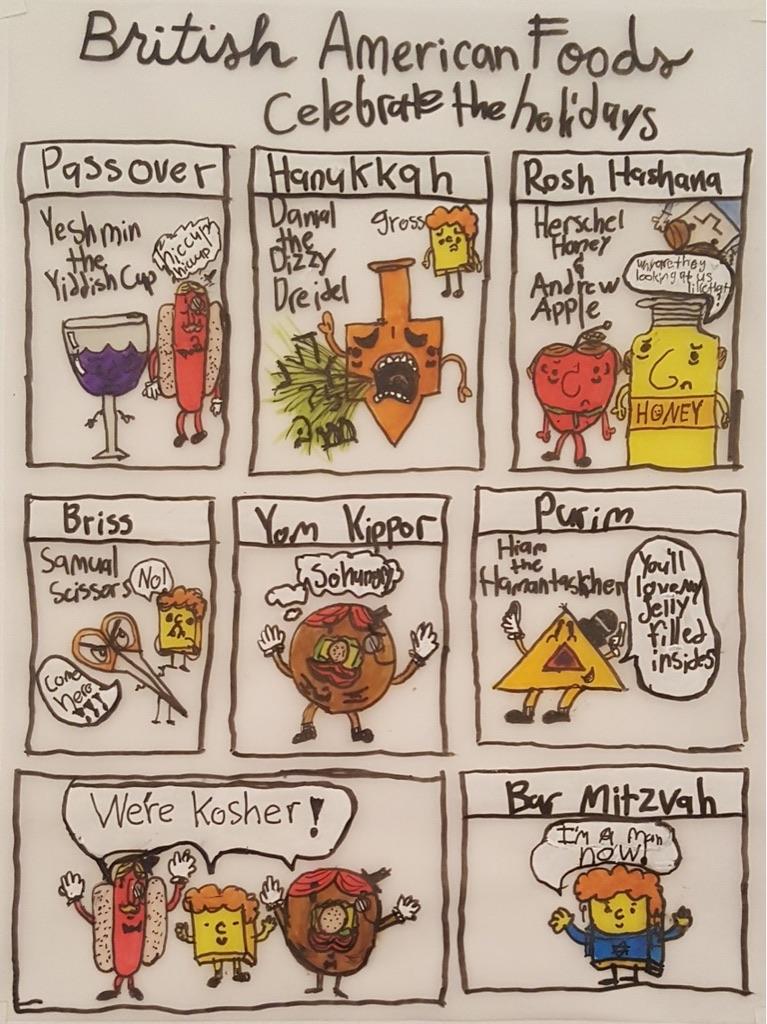 British American Foods
Celebrate the holidays
Passover
Yeshmin
the
Yiddish Cup
hiccup
hiccup
Hanukkah
Danial
the
Dizzy
Dreidel
gross
Rosh Hashana
Herschel
Honey
&
Andrew
Apple
why are they
looking at us
like that?
HONEY
Briss
Samual
Scissors
No!
Come
here
!!!
Yom Kippor
So hungry
Purim
Hiam
the
Hamantaskhen
You'll
love my
Jelly
filled
insides
We're Kosher!
Bar Mitzvah
I'm a man
now!